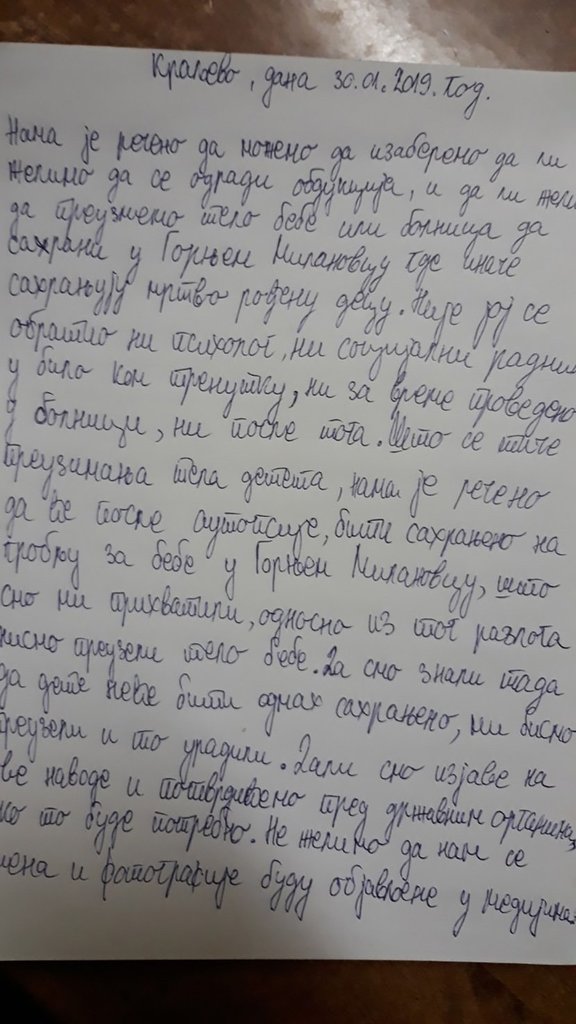 Краљево, дана 30.01.2019. год.
Нама је речено да можемо да изаберемо да ли
желимо да се одради обдукција, и да ли жели
да преузмемо тело бебе или болница да
сахрани у Горњем Милановцу где иначе
сахрањују мртво рођену децу. Није јој се
обратио ни психолог, ни социјални радник
у било ком тренутку, ни за време проведено
у болници, ни после тога. Што се тиче
преузимања тела детета, нама је речено
да ће после аутопсије, бити сахрањено на
гробљу за бебе у Горњем Милановцу, што
смо ми прихватили, односно из тог разлога
нисмо преузели тело бебе. Да смо знали тада
да дете неће бити одмах сахрањено, ми бисмо
преузели и то урадили. Дали смо изјаве на
ве наводе и потврдићемо пред државним органима,
ко то буде потребно. Не желимо да нам се
мена и фотографије буду објављене у медијима.